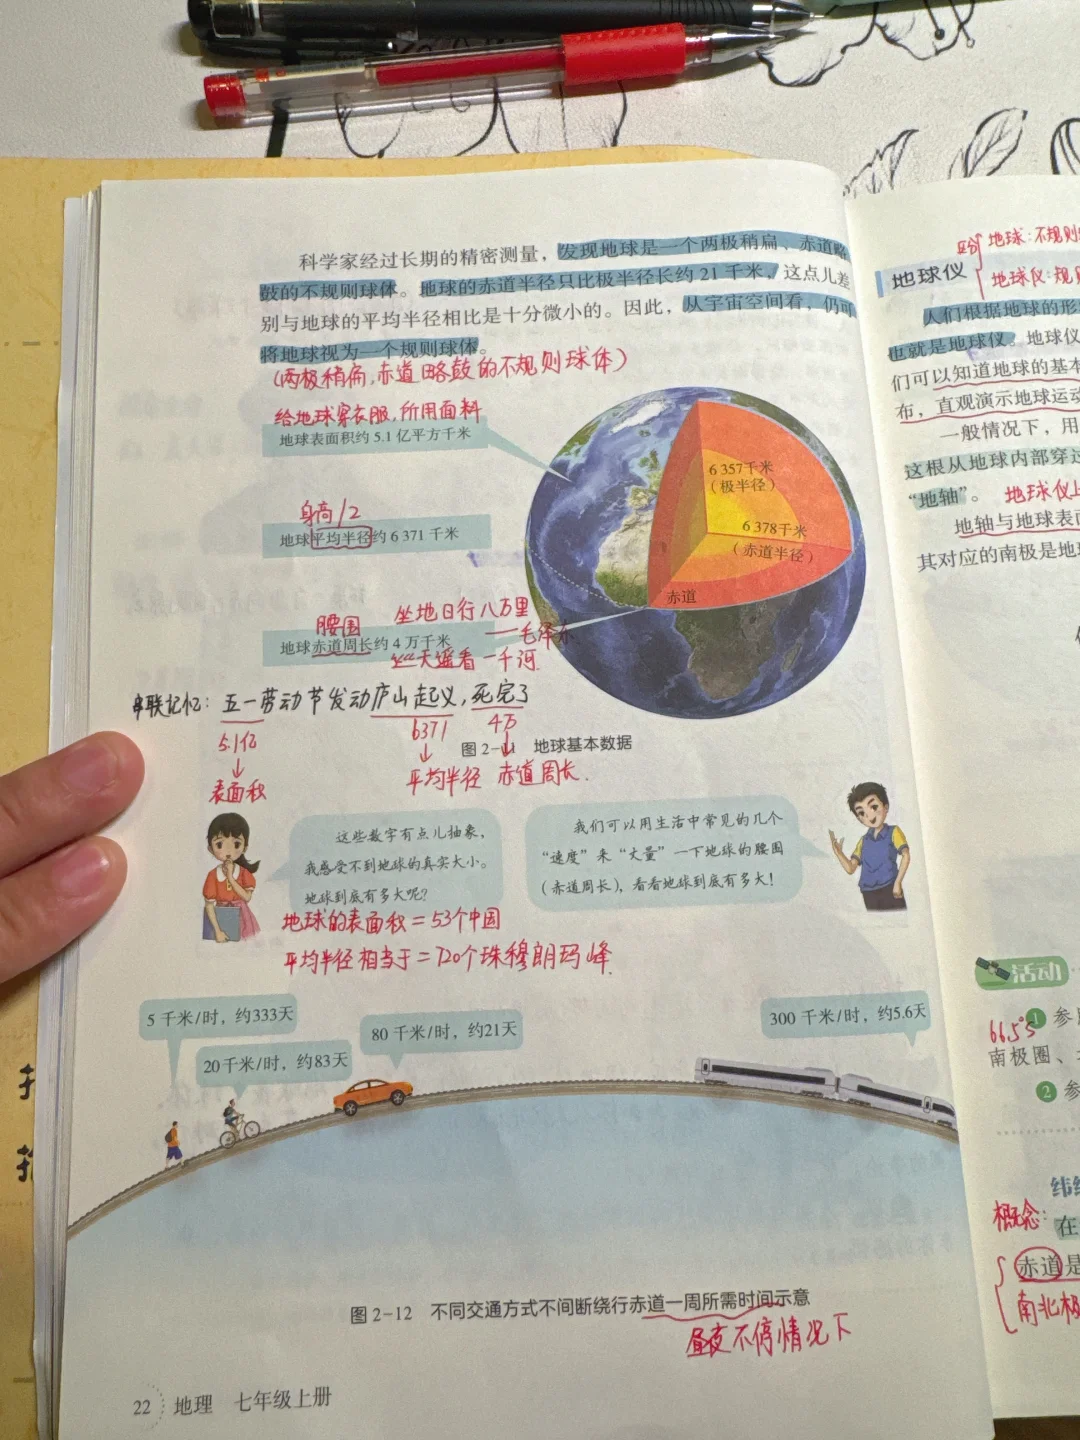 科学家经过长期的精密测量，发现地球是一个两极稍扁、赤道略
鼓的不规则球体。地球的赤道半径只比极半径长约 21 千米，这点儿差
别与地球的平均半径相比是十分微小的。因此，从宇宙空间看，仍可
将地球视为一个规则球体。
(两极稍扁,赤道略鼓的不规则球体)
给地球穿衣服,所用面料
地球表面积约 5.1 亿平方千米
身高/2
地球平均半径约 6 371 千米
腰围
坐地日行八万里
——毛泽东
地球赤道周长约 4 万千米
天遥看一千河
6 357千米
（极半径）
6 378千米
（赤道半径）
赤道
串联记忆：五一劳动节发动庐山起义,死完了
5.1亿
6371
4万
↓
↓
↓
表面积
平均半径
赤道周长.
图 2-11 地球基本数据
这些数字有点儿抽象，
我感受不到地球的真实大小。
地球到底有多大呢？
我们可以用生活中常见的几个
“速度”来“丈量”一下地球的腰围
（赤道周长），看看地球到底有多大！
地球的表面积＝53个中国
平均半径相当于＝720个珠穆朗玛峰
5 千米/时，约333天
20千米/时，约83天
80 千米/时，约21天
300 千米/时，约5.6天
图 2-12 不同交通方式不间断绕行赤道一周所需时间示意
昼夜不停情况下
22 地理 七年级上册
地球:不规则
地球仪
地球仪:规
人们根据地球的形
也就是地球仪。地球仪
们可以知道地球的基本
布，直观演示地球运动
一般情况下，用
这根从地球内部穿过
“地轴”。
地球仪上
地轴与地球表面
其对应的南极是地球
活动
66.5°S
1 参
南极圈、
2 参
纬
概念:
在
赤道是
南北极